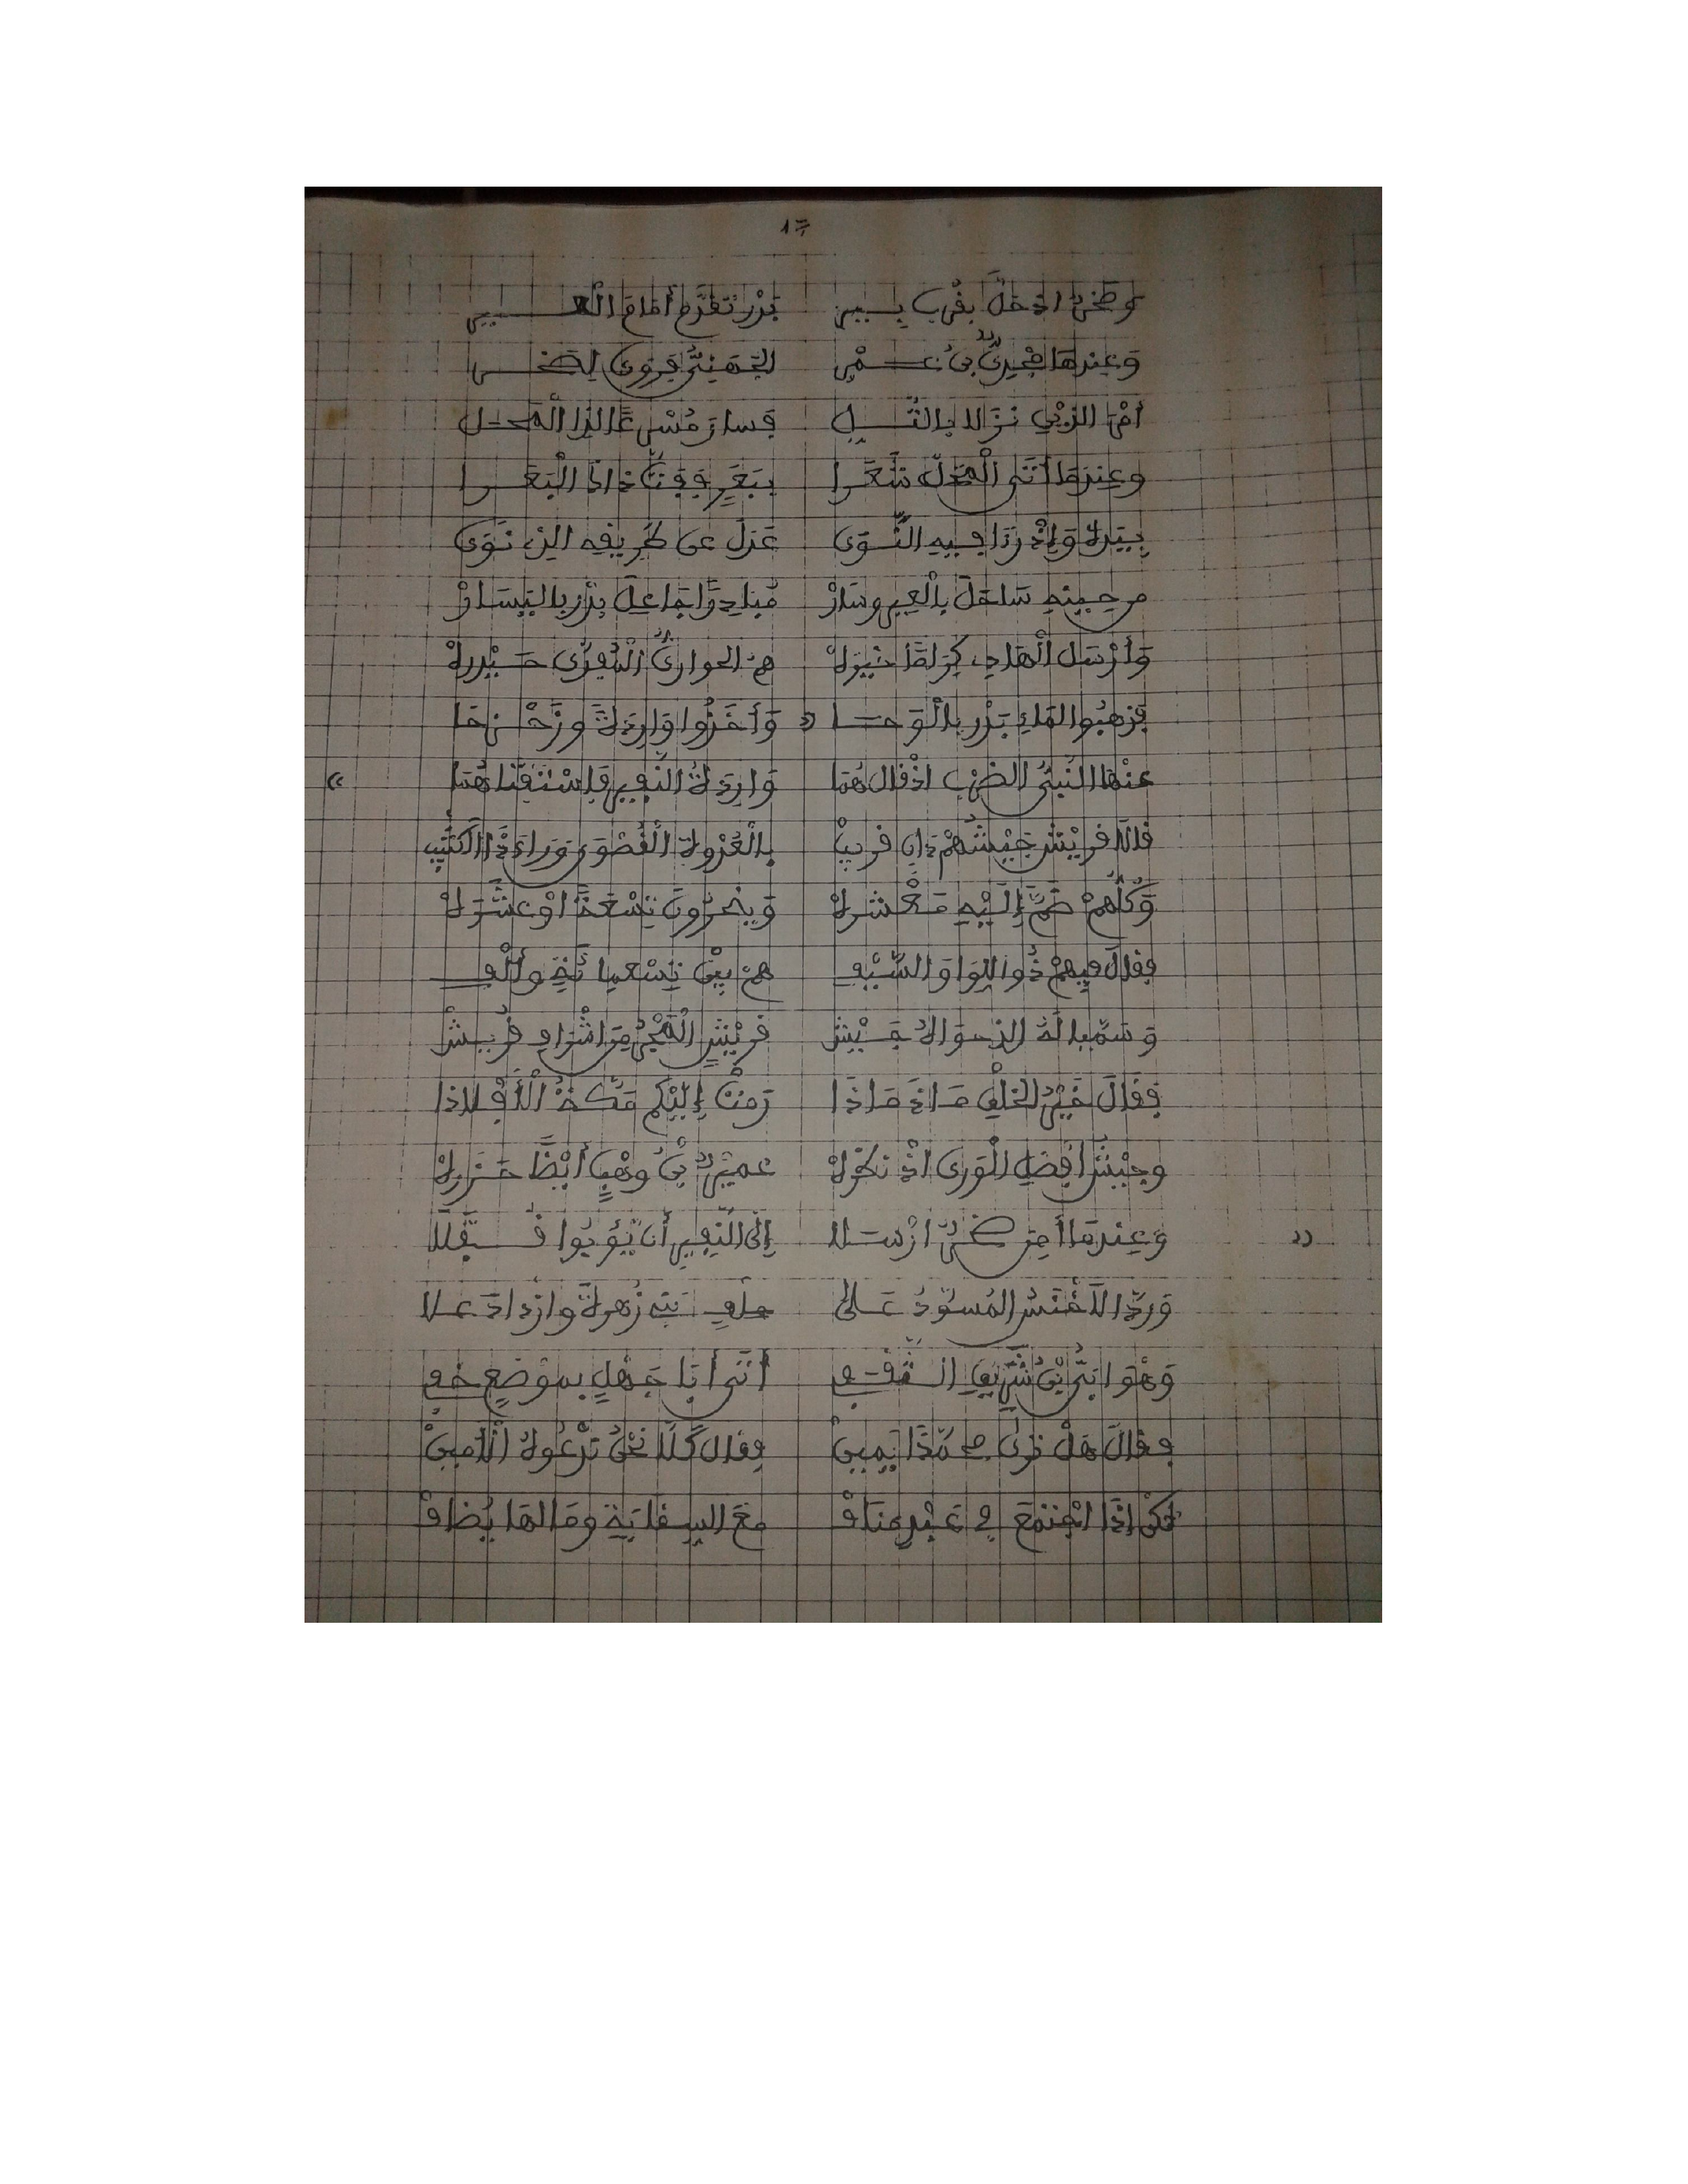 17
وصخر اذ حل بقرب بير بدر تقدم أمام العير
وعندها مجدي بن عمر الجهني فروى لصخر
أمر الذين نزلا بالتل فسار مسرعا لذا المحل
وعندما أتى المحل شعرا ببعر ففت ذاك البعرا
بيده وإذ رءا فيه النوى عدل عن طريقه الذ نوى
من حينه ساحل بالعير وسار مباد را جاعل بدر باليسار
وأرسل الهادي كرطا خيره هم الحواري السعدي حيدره
فذهبوا لماء بدر بالوحا وأخذوا واردة وزحزحا
عنها النبي الضرب اذ قال هما واردة النفير فاستفتاهما
قالا قريش جيشهم دان قريب بالعدوة القصوى وراء ذا الكثيب
وكلهم ضم إليه معشره وينحرون تسعة او عشره
فقال فيهم ذو اللوا والسيف هم بين تسعمائة وألف
وسميا له الذ حواه جيش قريش المجر من اشراف قريش
فقال خير الخلق ماذ ماذا رمت إليكم مكة الأفلاذا
وجيش أفضل الورى اذ نحوره عمير بن وهب أيضا حزره
وعندما أمن صخر ارسلا إلى النفير أن يؤبوا قفلا
ورد الاخنس المسود على حلف بني زهرة وازداد علا
وهو ابي بن شريق الثقفي أتى أبا جهل بموضع خفي
فقال هل ترى محمدا يمين فقال كلا نحن ندعوه الأمين
لكن إذا اجتمع في عبد مناف مع السقاية وما لها يضاف